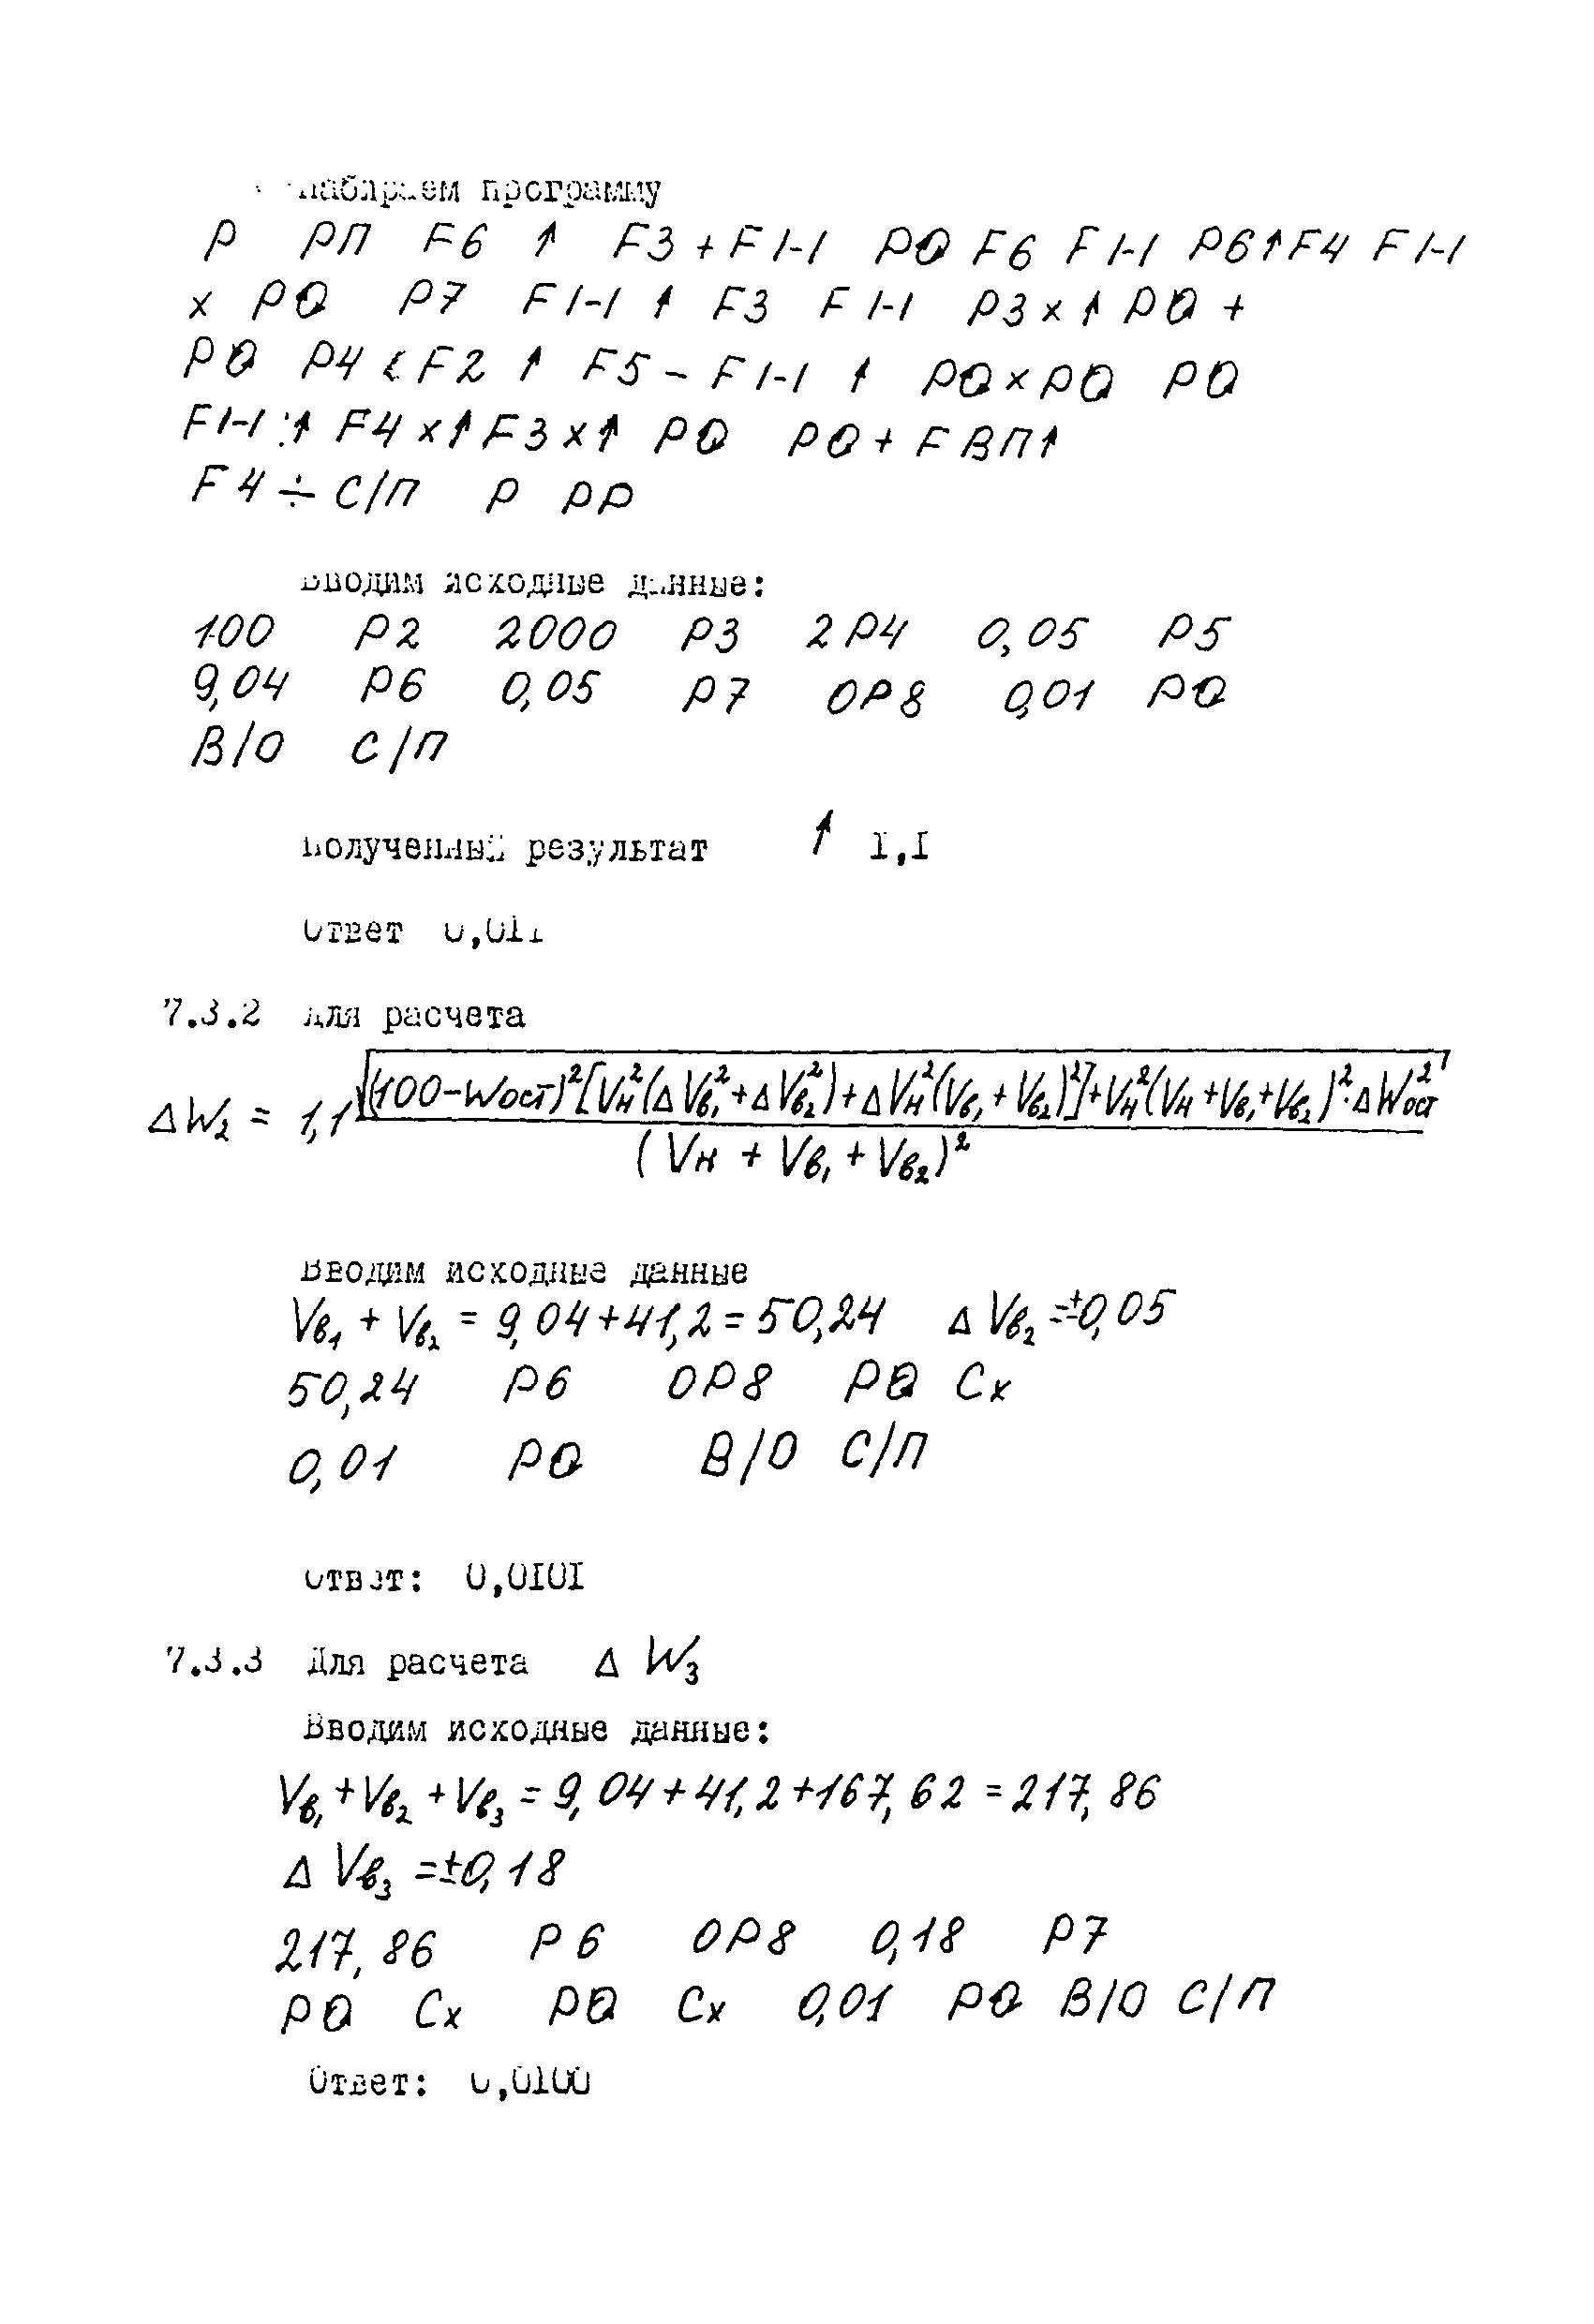 Набираем программу
P PП F6 ↑ F3 + F 1-1 PQ F6 F 1-1 P6 ↑ F4 F 1-1
× PQ P7 F 1-1 ↑ F3 F 1-1 P3 × ↑ PQ +
PQ P4 F2 ↑ F5 - F 1-1 ↑ PQ × PQ PQ
F 1-1 ↑ F4 × ↑ F3 × ↑ PQ PQ + F ВП ↑
F4 ÷ С/П P PP
Вводим исходные данные:
100 P2 2000 P3 2 P4 0,05 P5
9,04 P6 0,05 P7 0P8 0,01 PQ
В/О С/П
Полученный результат ↑ I,I
Ответ 0,011
7.3.2 Для расчета
ΔW₂ = 1,1 √((100-Wост)²[Vн²(ΔVв₁²+ΔVв₂²)+ΔVн²(Vв₁+Vв₂)²]+Vн²(Vн+Vв₁+Vв₂)²·ΔWост²)
(Vн + Vв₁ + Vв₂)²
Вводим исходные данные
Vв₁ + Vв₂ = 9,04+41,2 = 50,24 ΔVв₂ =±0,05
50,24 P6 0P8 PQ Cx
0,01 PQ В/О С/П
Ответ: 0,0I0I
7.3.3 Для расчета Δ W₃
Вводим исходные данные:
Vв₁ +Vв₂ +Vв₃ = 9,04+41,2+167,62 = 217,86
Δ Vв₃ =±0,18
217,86 P6 0P8 0,18 P7
PQ Cx PQ Cx 0,01 PQ В/О С/П
Ответ: 0,0100